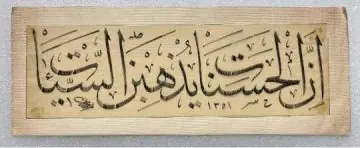 إنّ الحسنات يذهبن السّيّئات
١٣٥١